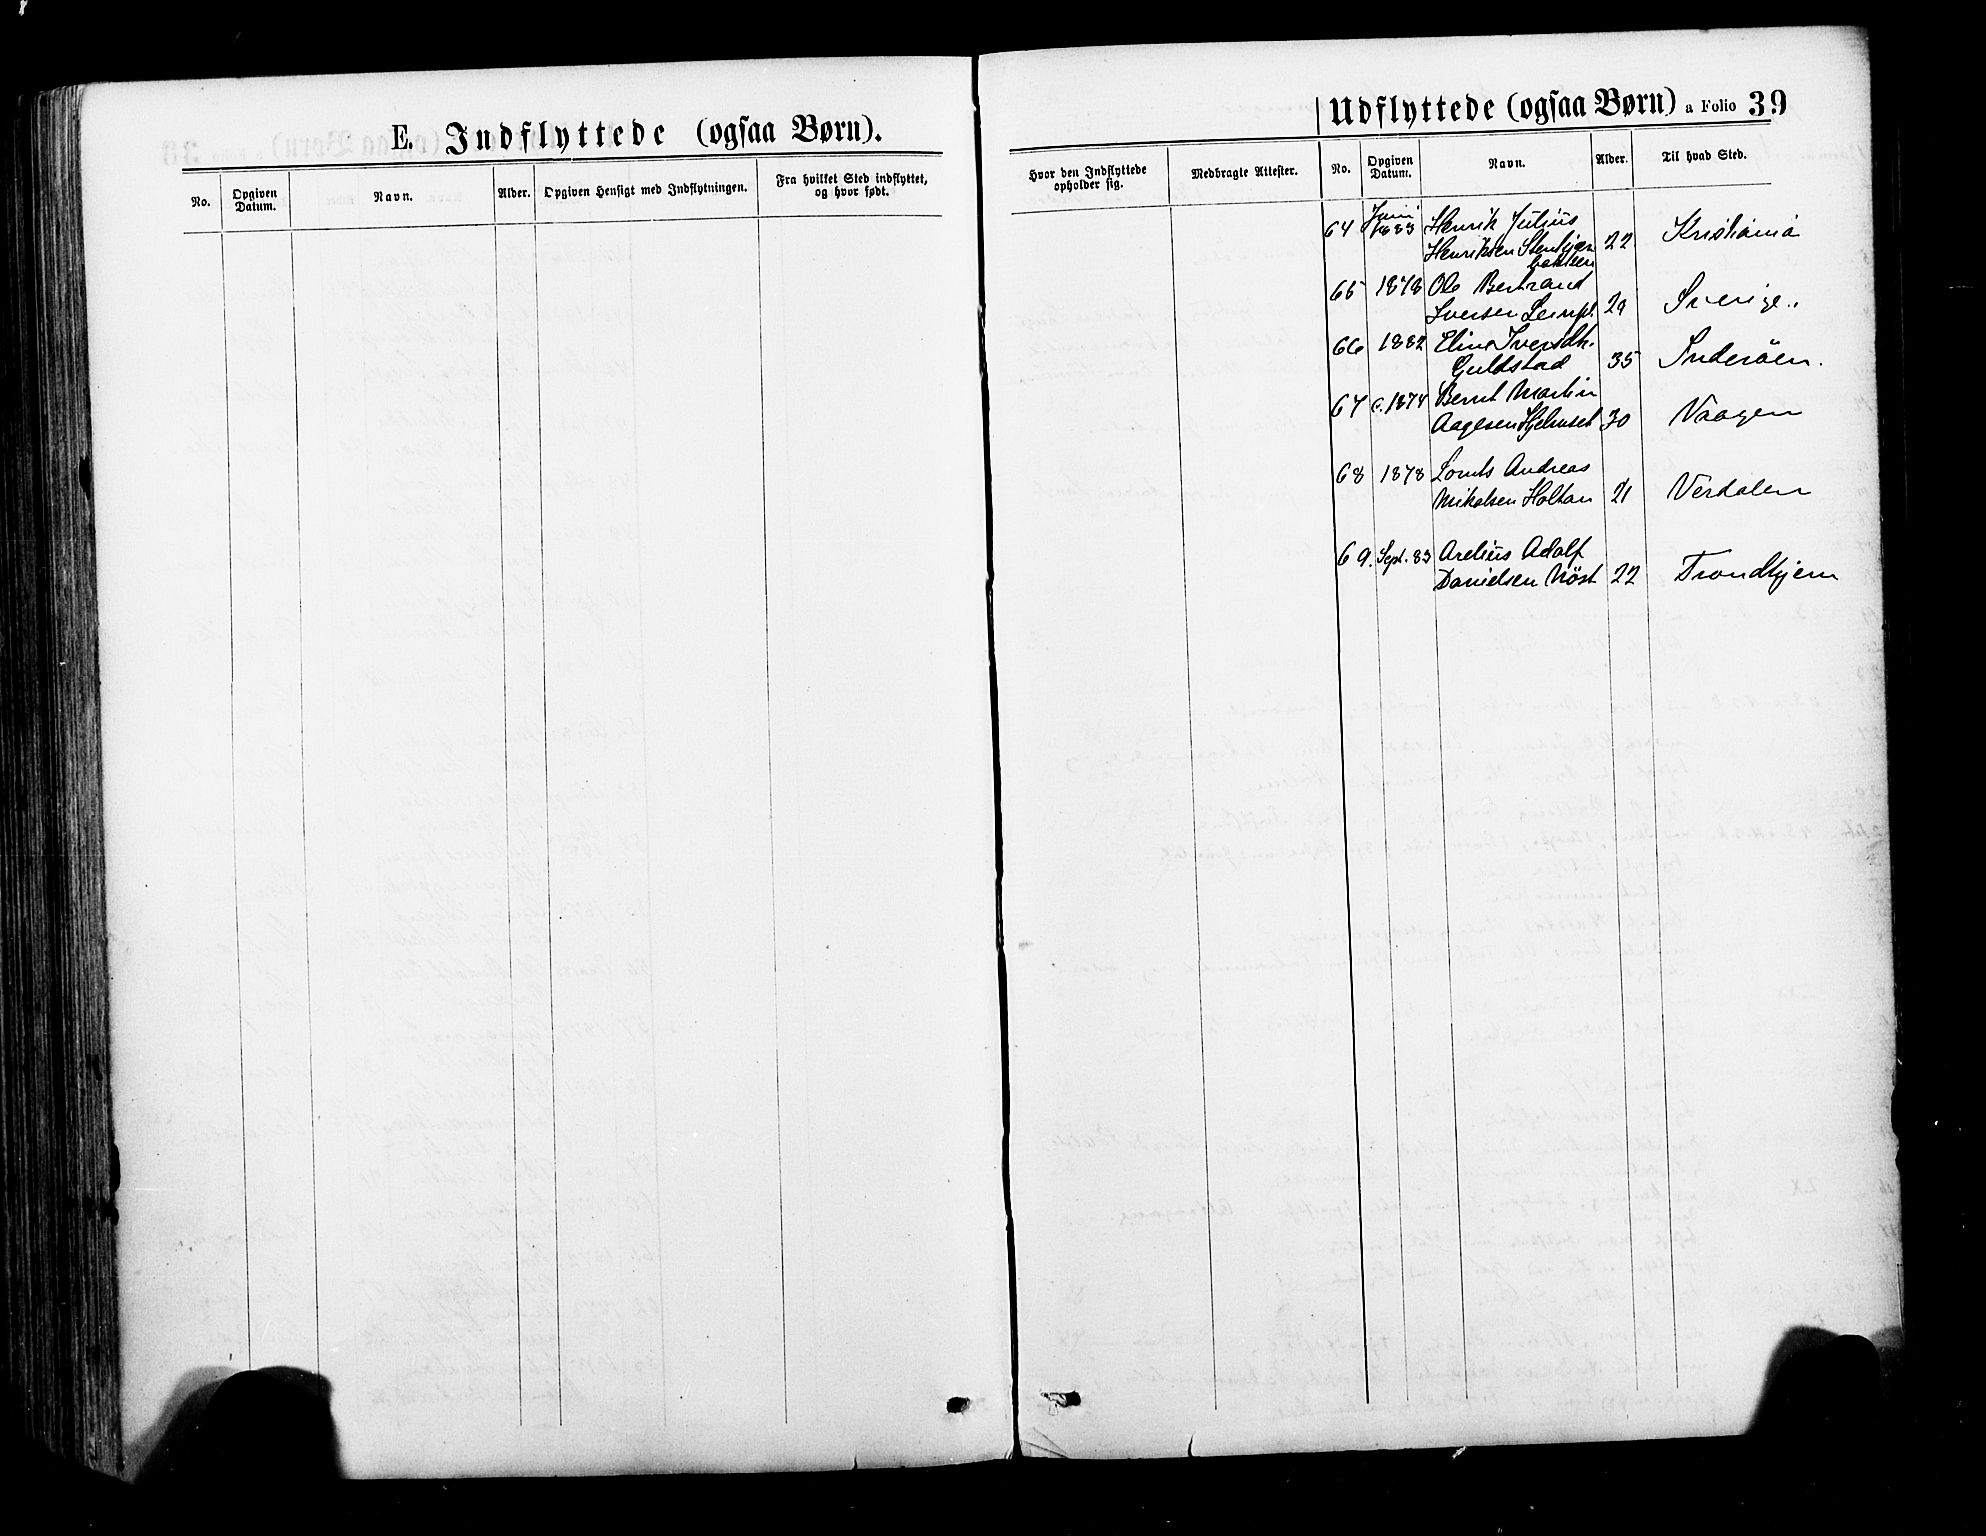 E. Indflyttede (ogsaa Børn).
No.
Opgiven Datum.
Navn.
Alder.
Opgiven Hensigt med Indflytningen.
Fra hvilket Sted indflyttet,
og hvor født.
Udflyttede (ogsaa Børn) a Folio 39
Hvor den Indflyttede
opholder sig.
Medbragte Attester.
No.
Opgiven Datum.
Navn.
Alder.
Til hvad Sted.
64 Juni 1883 Henrik Julius
Henriksen Stenkjær 22 Kristiania
bakken
65 1878 Ole Bertrand
Iversen 29 Sverige
66 1882 Eline Iversdtr.
Guldstad 35 Inderöen.
67 c. 1874 Bernt Martin
Aagesen 30 Vaagen
68 1878 Lorents Andreas
Mikalsen Holtan 21 Verdalen
69. Sept. 83 Arelius Adolf
Danielsen Nöst 22 Trondhjem